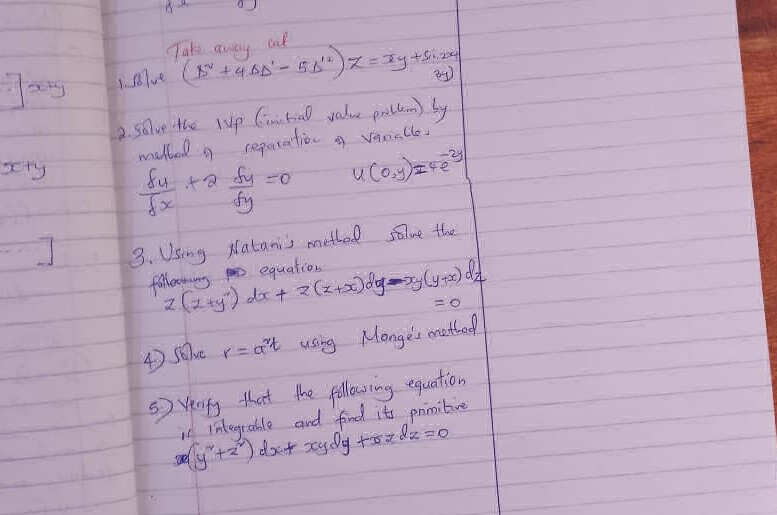 ] x+y
x+y
]
Take away cat
1. Solve (D² + 4DD' - 5D'²) z = xy + sin(2x
3y)
2. Solve the IVP (initial value problem) by
method of separation of variable.
δu/δx + 2 δu/δy = 0 u(0,y) = 4e^-2y
3. Using Natani's method solve the
following equation
z(z+y²) dx + z(z+x) dy - xy(y+x) dz
= 0
4) Solve r = a²t using Monge's method
5) Verify that the following equation
is integrable and find its primitive
(y²+z²) dx + xy dy + xz dz = 0